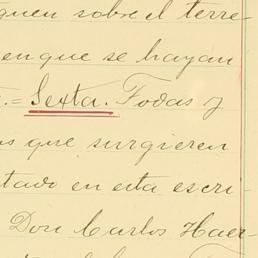 guen sobre el terre-
en que se hayan
.= Sexta. Todas y
as que surgieren
tado en esta escri-
Don Carlos Haer-